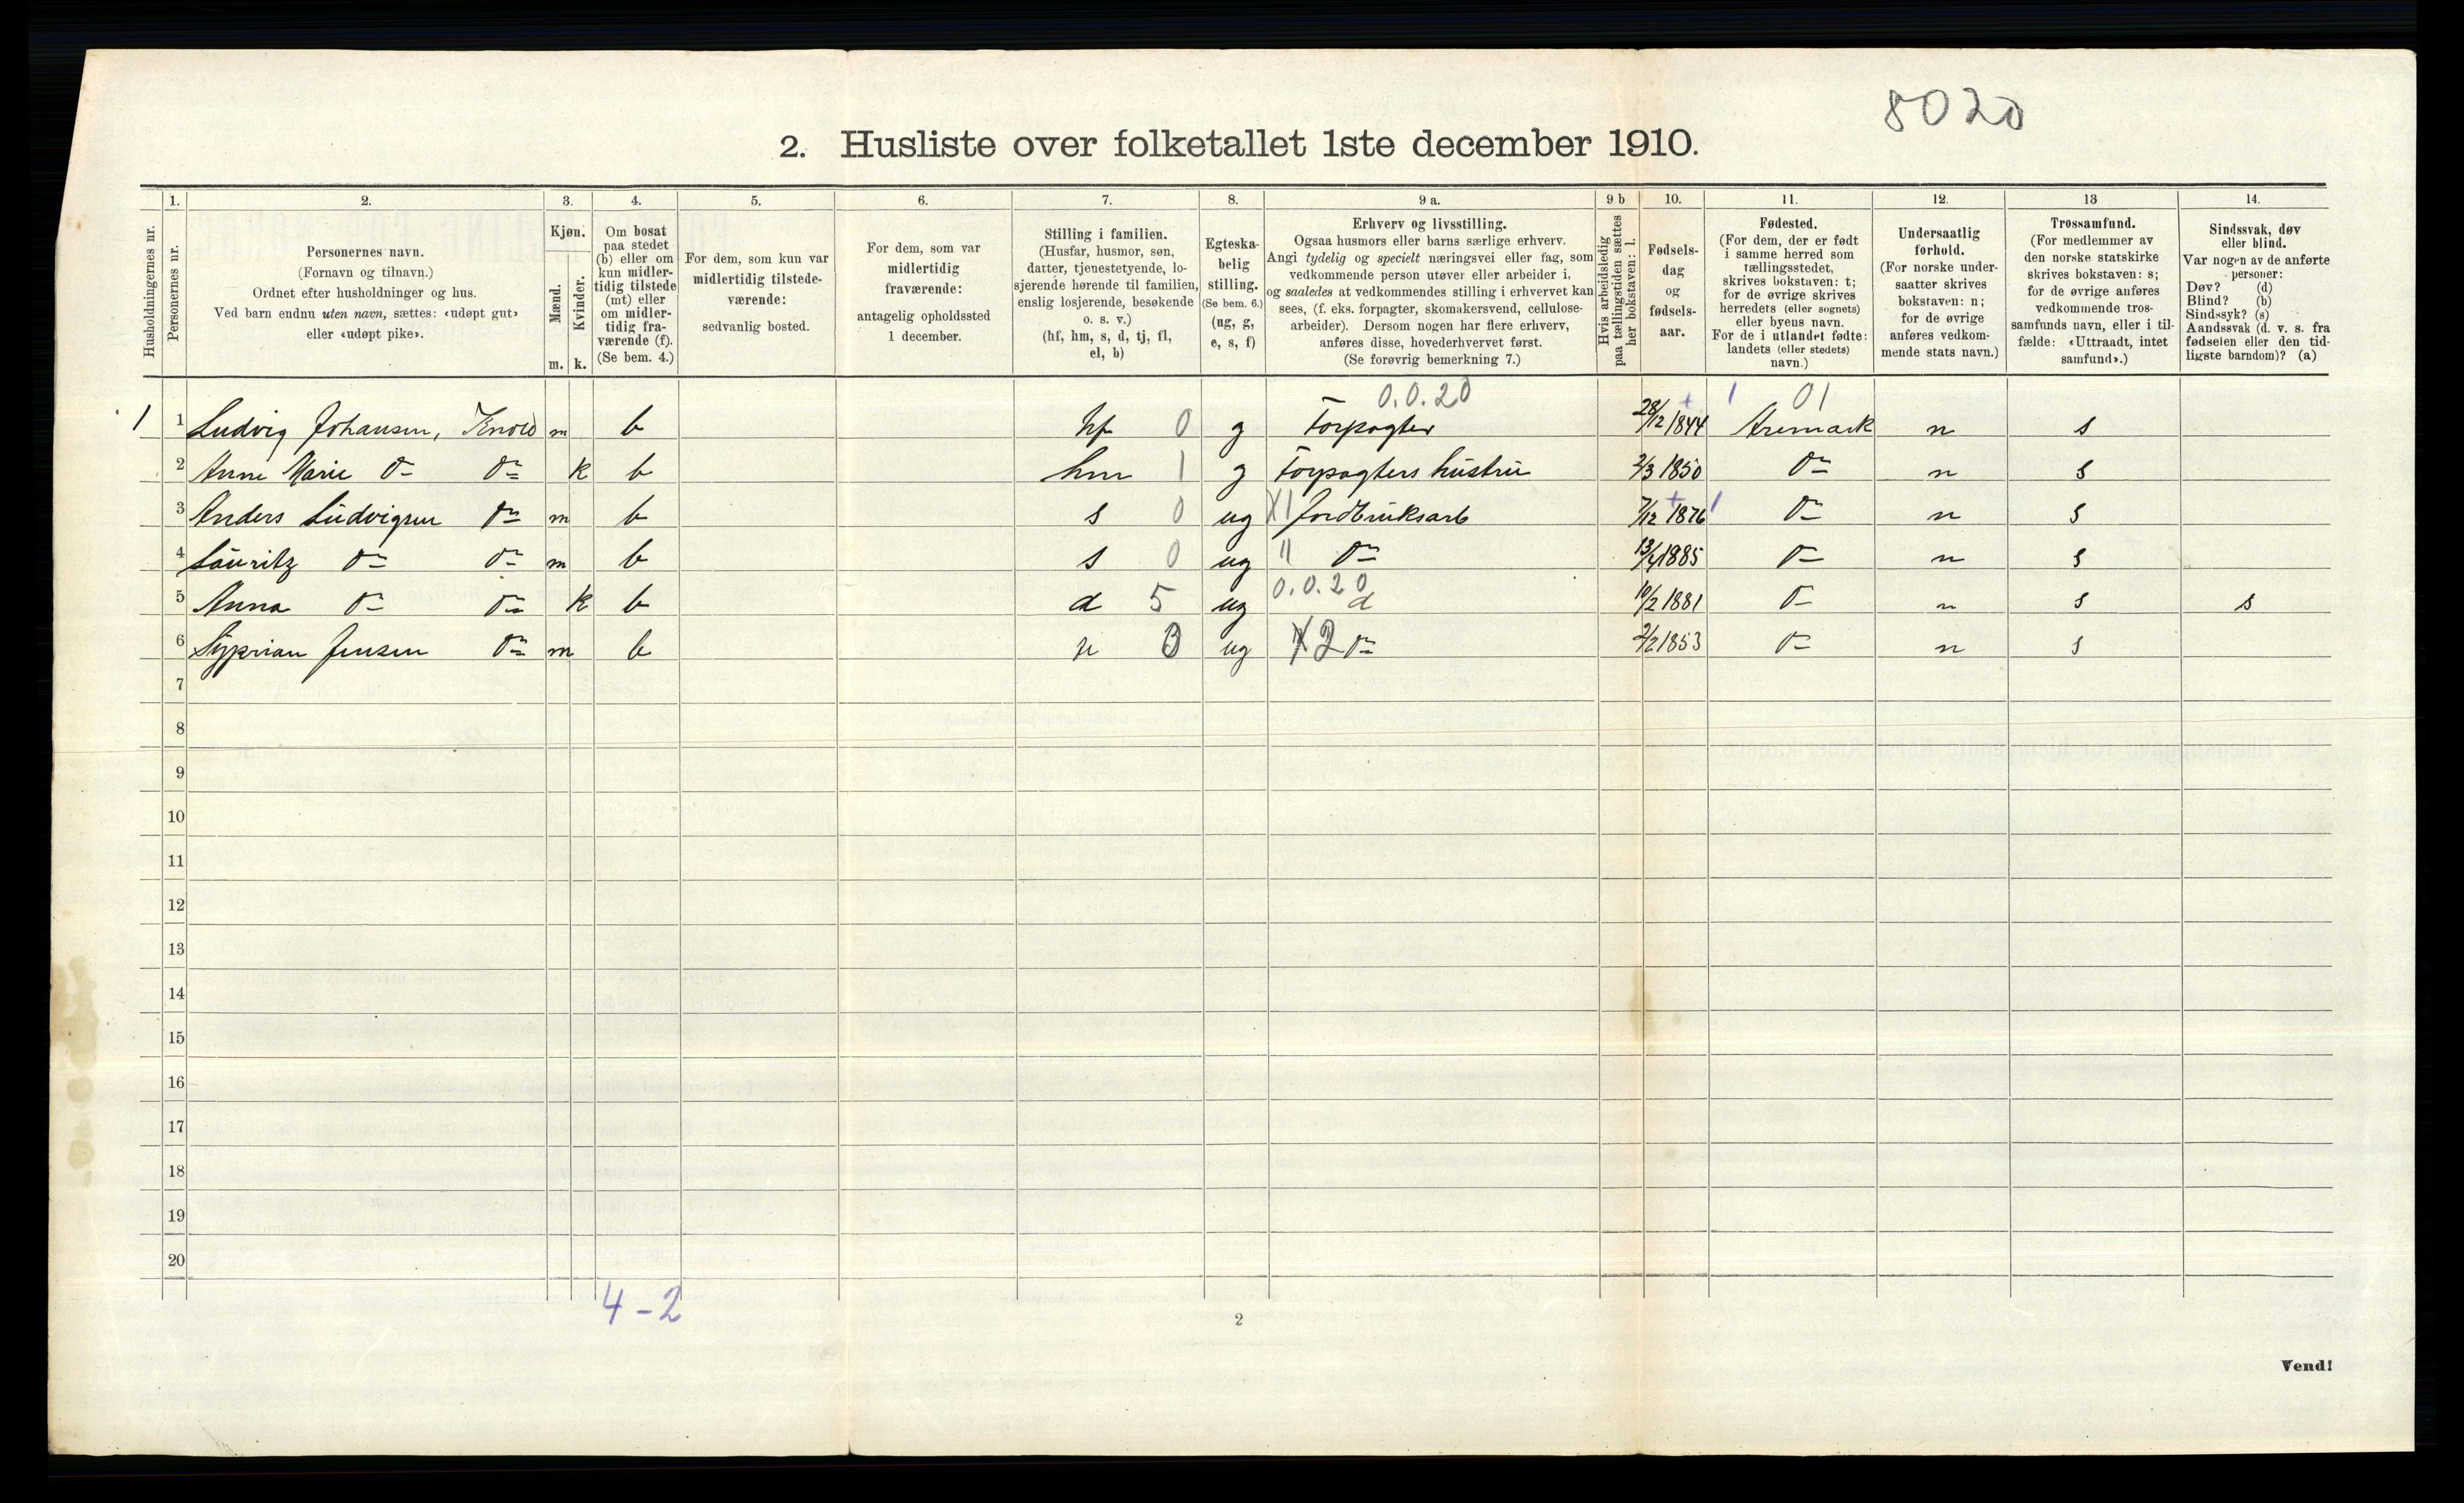 8020
2. Husliste over folketallet 1ste december 1910.
Husholdningernes nr.
1.
Personernes nr.
2.
Personernes navn.
(Fornavn og tilnavn.)
Ordnet efter husholdninger og hus.
Ved barn endnu uten navn, sættes: «udøpt gut»
eller «udøpt pike».
3.
Kjøn.
Mænd.
Kvinder.
m. k.
4.
Om bosat
paa stedet
(b) eller om
kun midler-
tidig tilstede
(mt) eller
om midler-
tidig fra-
værende (f).
(Se bem. 4.)
5.
For dem, som kun var
midlertidig tilstede-
værende:
sedvanlig bosted.
6.
For dem, som var
midlertidig
fraværende:
antagelig opholdssted
1 december.
7.
Stilling i familien.
(Husfar, husmor, søn,
datter, tjenestetyende, lo-
sjerende hørende til familien,
enslig losjerende, besøkende
o. s. v.)
(hf, hm, s, d, tj, fl,
el, b)
8.
Egteska-
belig
stilling.
(Se bem. 6.)
(ug, g,
e, s, f)
9 a.
Erhverv og livsstilling.
Ogsaa husmors eller barns særlige erhverv.
Angi tydelig og specielt næringsvei eller fag, som
vedkommende person utøver eller arbeider i,
og saaledes at vedkommendes stilling i erhvervet kan
sees, (f. eks. forpagter, skomakersvend, cellulose-
arbeider). Dersom nogen har flere erhverv,
anføres disse, hovederhvervet først.
(Se forøvrig bemerkning 7.)
9 b
Hvis arbeidsledig
paa tællingstiden sættes
her bokstaven: l.
10.
Fødsels-
dag
og
fødsels-
aar.
11.
Fødested.
(For dem, der er født
i samme herred som
tællingsstedet,
skrives bokstaven: t;
for de øvrige skrives
herredets (eller sognets)
eller byens navn.
For de i utlandet fødte:
landets (eller stedets)
navn.)
12.
Undersaatlig
forhold.
(For norske under-
saatter skrives
bokstaven: n;
for de øvrige
anføres vedkom-
mende stats navn.)
13
Trossamfund.
(For medlemmer av
den norske statskirke
skrives bokstaven: s;
for de øvrige anføres
vedkommende tros-
samfunds navn, eller i til-
fælde: «Uttraadt, intet
samfund».)
14.
Sindssvak, døv
eller blind.
Var nogen av de anførte
personer:
Døv? (d)
Blind? (b)
Sindssyk? (s)
Aandssvak (d. v. s. fra
fødselen eller den tid-
ligste barndom)? (a)
0.0.20 01
1 1 Ludvig Johansen, m b hf 0 g Forpagter 28/12 1844 Aremark n s
2 Anne Marie do do k b hm 1 g Forpagters hustru 2/3 1850 do n s
3 Anders Ludvigsen do m b s 0 ug X1 Jordbruksarb 7/12 1876 do n s
4 Lauritz do do m b s 0 ug " do 13/4 1885 do n s
0.0.20
5 Anna do do k b d 5 ug d 10/2 1881 do n s s
6 Syprian Jensen do m b ug X2 do 2/2 1853 do n s
7
8
9
10
11
12
13
14
15
16
17
18
19
20
4-2
2
Vend!